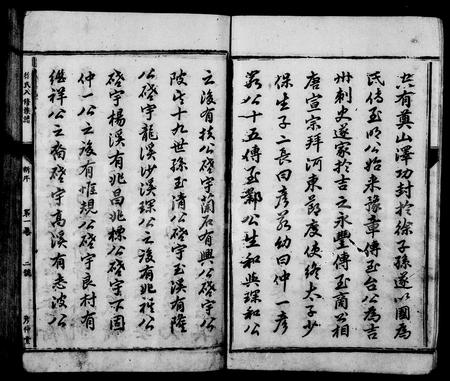 共有奠山澤功封於徐子孫遂以國為
氏傳至明公始来豫章傳至台公為吉
州刺史遂家於吉之永豐傳至蘭公相
唐宣宗拜河東節度使終太子少
保生子二長曰彦若幼曰仲一彦
若公十五傳至鄴公生和與琛和公
之後有技公啓宇蘭石有興公啓宇
陂下十九世孫玉清公啓宇玉溪有隆
公啓宇龍溪沙溪琛公之後有兆程公
啓宇楊溪有兆昌兆棟公啓宇下固
仲一公之後有惟規公啓宇良村有
继祥公之裔啓宇高溪有志波公
徐氏八修族譜
新序
第一卷
二號